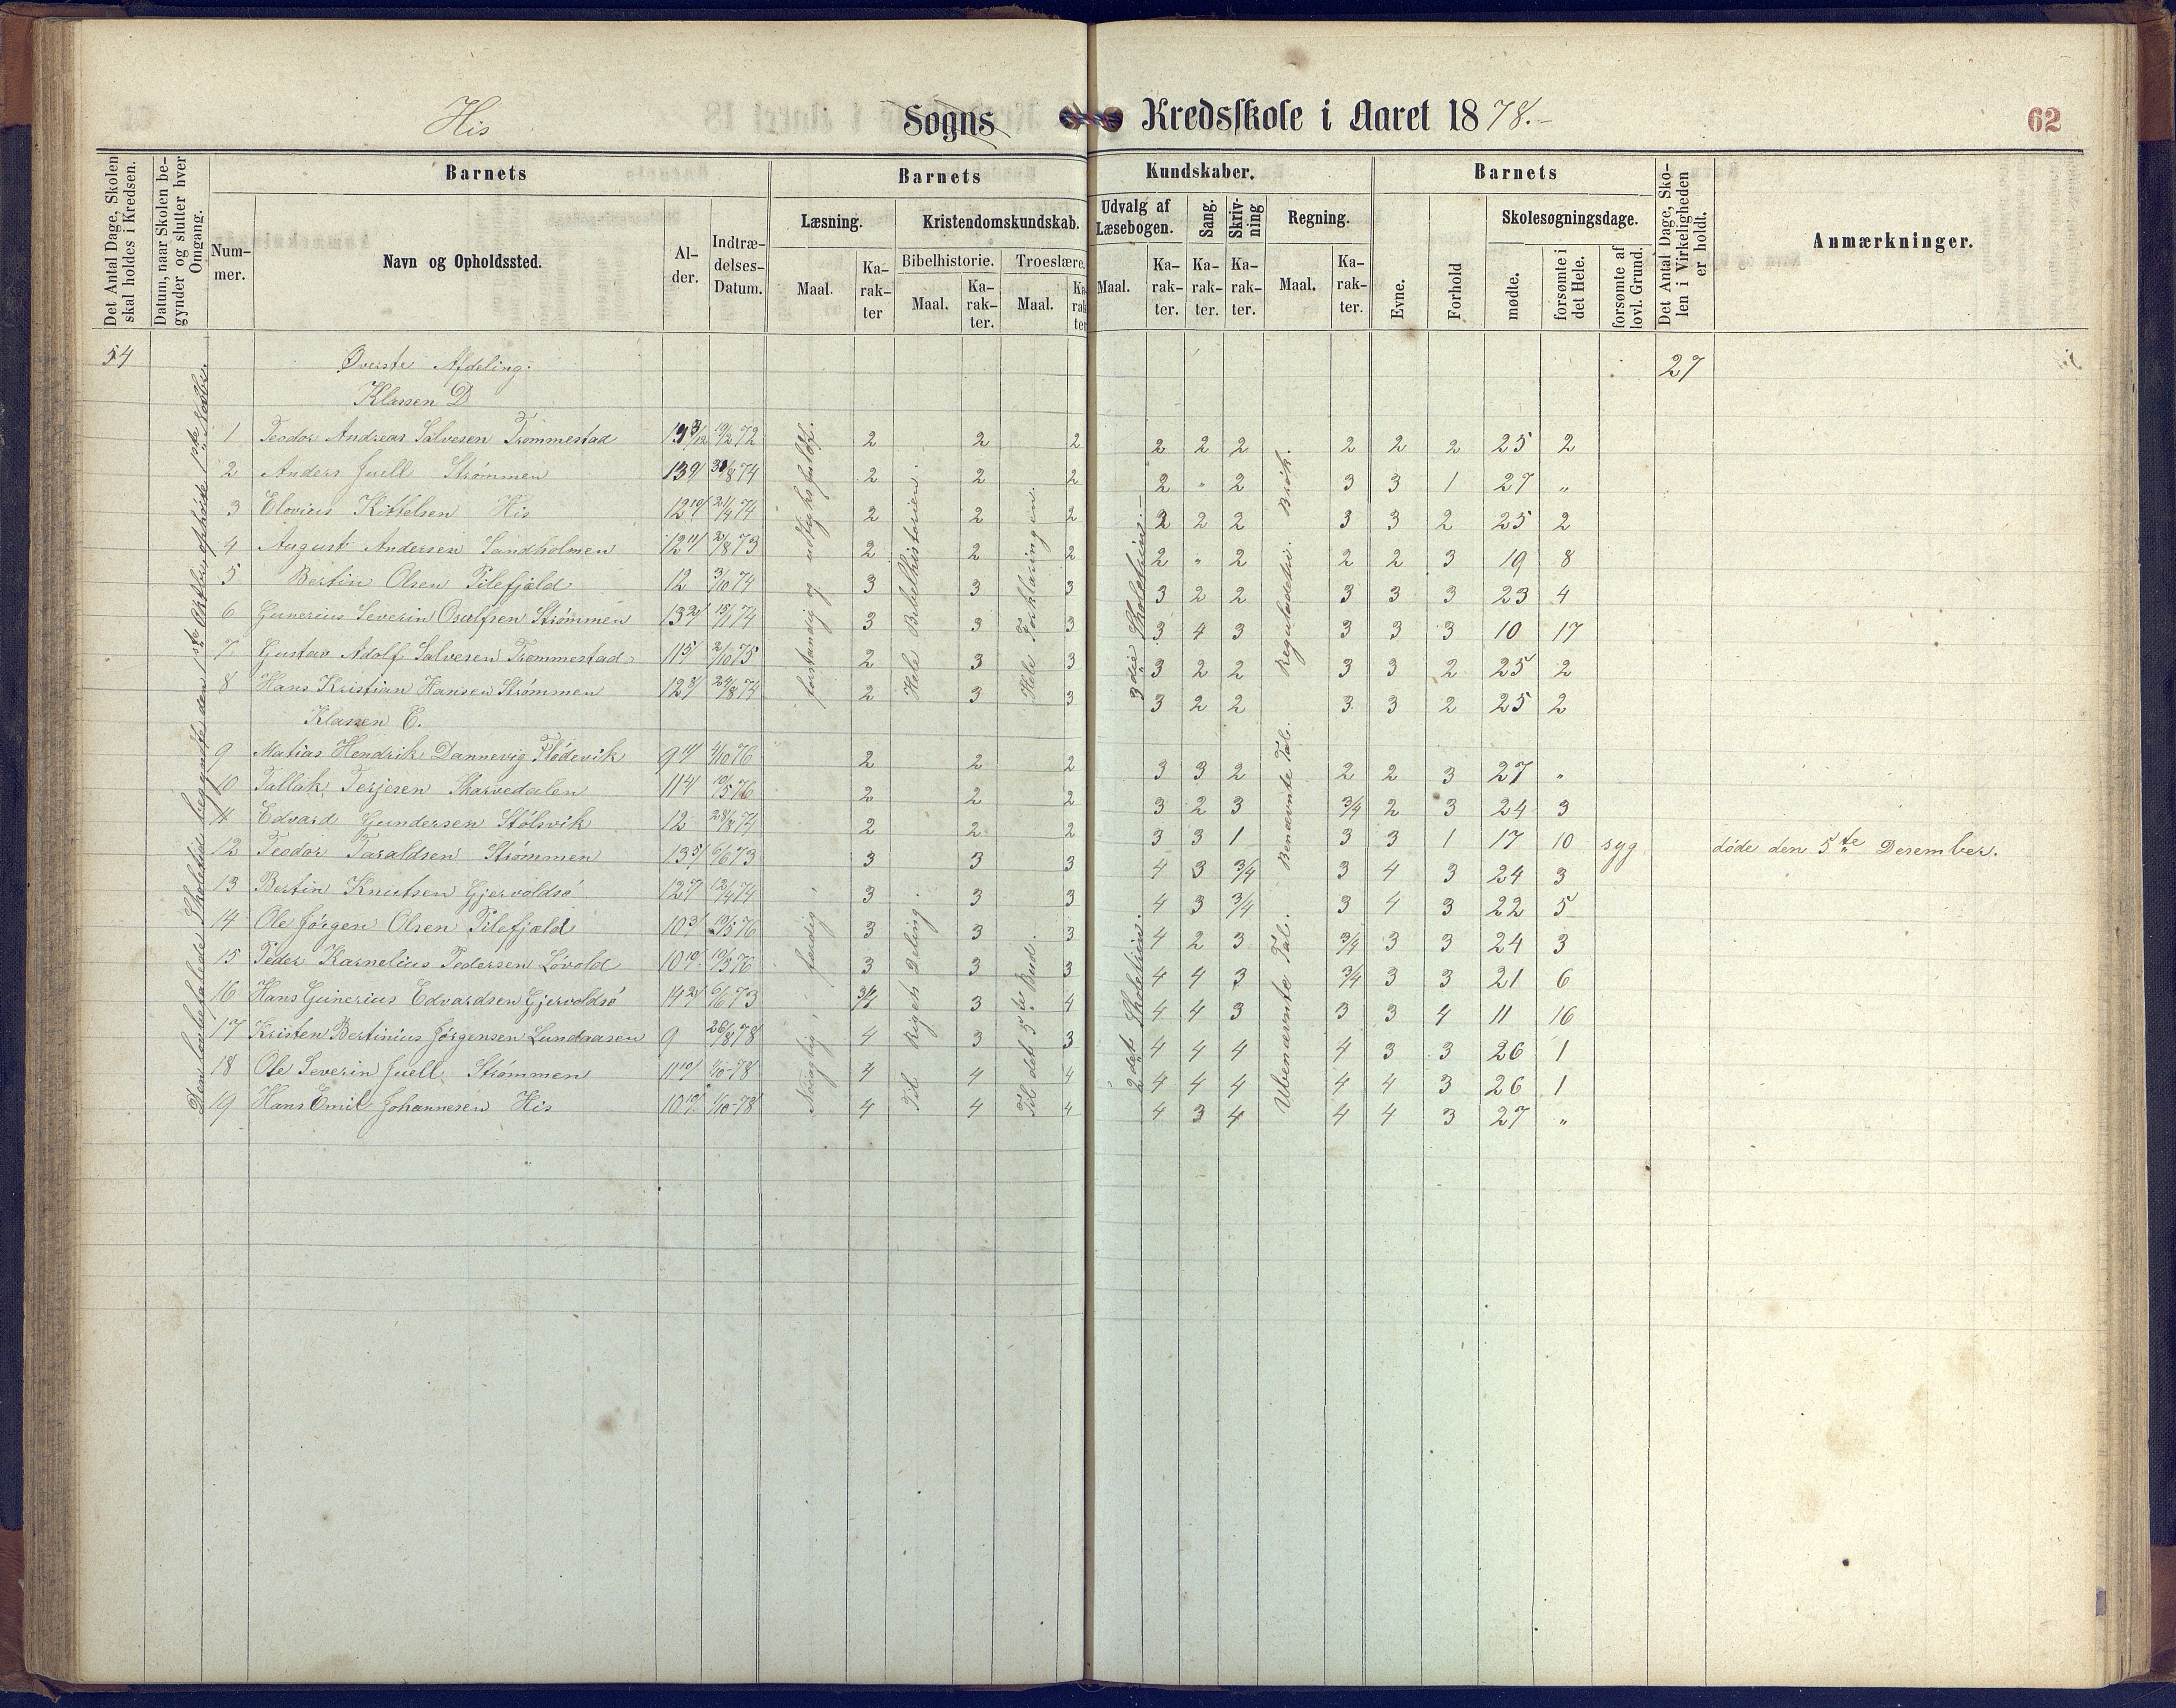 His Sogns Kredsskole i Aaret 1878.- 62
Det Antal Dage, Skolen skal holdes i Kredsen.
Datum, naar Skolen begynder og slutter hver Omgang.
Barnets
Nummer.
Navn og Opholdssted.
Alder.
Indtrædelses-Datum.
Barnets Kundskaber.
Læsning.
Maal.
Karakter
Kristendomskundskab.
Bibelhistorie.
Maal.
Karakter.
Troeslære.
Maal.
Karakter
Udvalg af Læsebogen.
Maal.
Karakter.
Sang.
Karakter.
Skrivning
Karakter.
Regning.
Maal.
Karakter.
Barnets
Evne.
Forhold
Skolesøgningsdage.
mødte.
forsømte i det Hele.
forsømte af lovl. Grund.
Det Antal Dage, Skolen i Virkeligheden er holdt.
Anmærkninger.
54 Øverste Afdeling. 27
Klassen D
1 Teodor Andreas Salvesen Trommestad 2 2 2 2 2 2 2 2 2 25 2
2 Anders Juell Strømmen 2 2 2 2 " 2 3 3 1 27 "
3 Elovius Kittelsen His 2 2 2 2 2 2 3 3 2 25 2
4 August Andersen Sandholmen 2 2 2 2 " 2 2 2 3 19 8
5 Bertin Olsen Pilefjæld 12 3/10 74 3 3 3 3 2 2 3 3 3 23 4
6 Gunerius Severin Osulfsen Strømmen 3 3 3 3 4 3 3 3 3 10 17
7 Gustav Adolf Salvesen Trommestad 2 3 3 3 2 2 3 3 2 25 2
8 Hans Kristian Hansen Strømmen 2 3 3 3 2 2 3 3 2 25 2
Klassen E.
9 Matias Hendrik Dannevig Flødevik 2 2 2 3 3 2 2 2 3 27 "
10 Tallak Terjesen Skarvedalen 2 2 2 3 2 3 3/4 2 3 24 3
11 Edvard Gundersen Stølsvik 12 28/8 74 2 2 2 3 3 1 3 3 1 17 10 syg døde den 5te Desember.
12 Teodor Taraldsen Strømmen 3 3 3 4 3 3/4 3 4 3 24 3
13 Bertin Knutsen Gjervoldsø 3 3 3 4 3 3/4 3 4 3 22 5
14 Ole Jørgen Olsen Pilefjæld 3 3 3 4 2 3 3/4 3 3 24 3
15 Peder Karnelius Pedersen Løvold 3 3 3 4 4 3 3/4 3 3 21 6
16 Hans Gunerius Edvardsen Gjervoldsø 3/4 3 4 4 4 3 3 3 4 11 16
17 Kristen Bertinius Jørgensen Lundaasen 9 26/8 78 4 3 3 4 4 4 4 3 3 26 1
18 Ole Severin Juell Strømmen 4 4 4 4 4 4 4 4 3 26 1
19 Hans Emil Johannesen His 4 4 4 4 3 4 4 4 3 27 "
Den lovbefalede Skoletid begyndte den 1ste Oktbr, ophørte 1ste Novbr.
forstandig og udtryksfuldt.
færdig
Hele Bibelhistorien.
Til Rigets Deling.
Hele Forklaringen.
Til det 5te Bud.
3die Skoletrin.
2det Skoletrin.
Reguladetri. Brøk.
Ubenævnte Tal. Benævnte Tal.